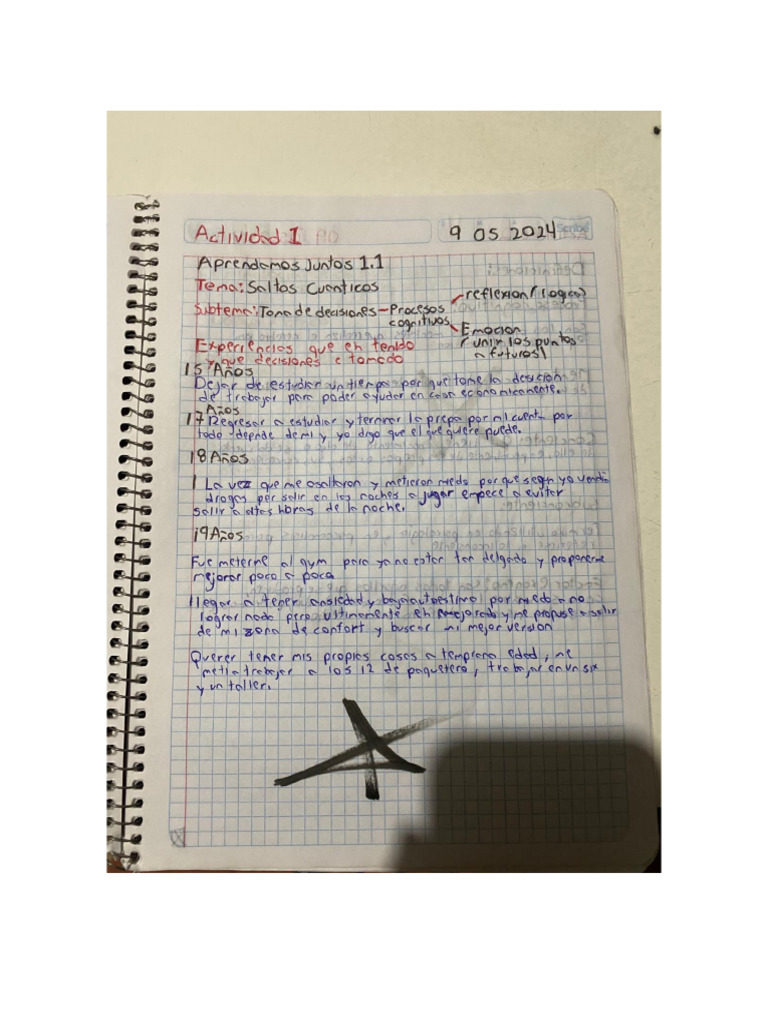 Actividad 1
9 05 2024 Scribe
Aprendamos Juntos 1.1
Tema: Saltos Cuanticos
Subtema: Toma de decisiones - Procesos cognitivos
reflexion (logica)
Emocion
(unir los puntos
a futuros)
Experiencias que eh tenido
y que decisiones e tomado
15 Años
Dejar de estudiar un tiempo por que tome la desicion
de trabajar para poder ayudar en casa economicamente.
17 Años
Regresar a estudiar y terminar la prepa por mi cuenta por
todo depende de mi y yo digo que el que quiere puede.
18 Años
1 La vez que me asaltaron y metieron miedo por que segn yo vendia
drogas por salir en las noches a jugar empece a evitar
salir a altas horas de la noche.
19 Años
Fue meterme al gym para ya no estar tan delgado y proponerme
mejorar poco a poco
llegar a tener ansiedad y baja autoestima por miedo a no
lograr nada pero ultimamente eh mejorado y me propuse a salir
de mi zona de confort y buscar mi mejor version
Querer tener mis propias cosas a temprana edad, me
meti a trabajar a los 12 de paquetero, trabajar en un six
y un taller.